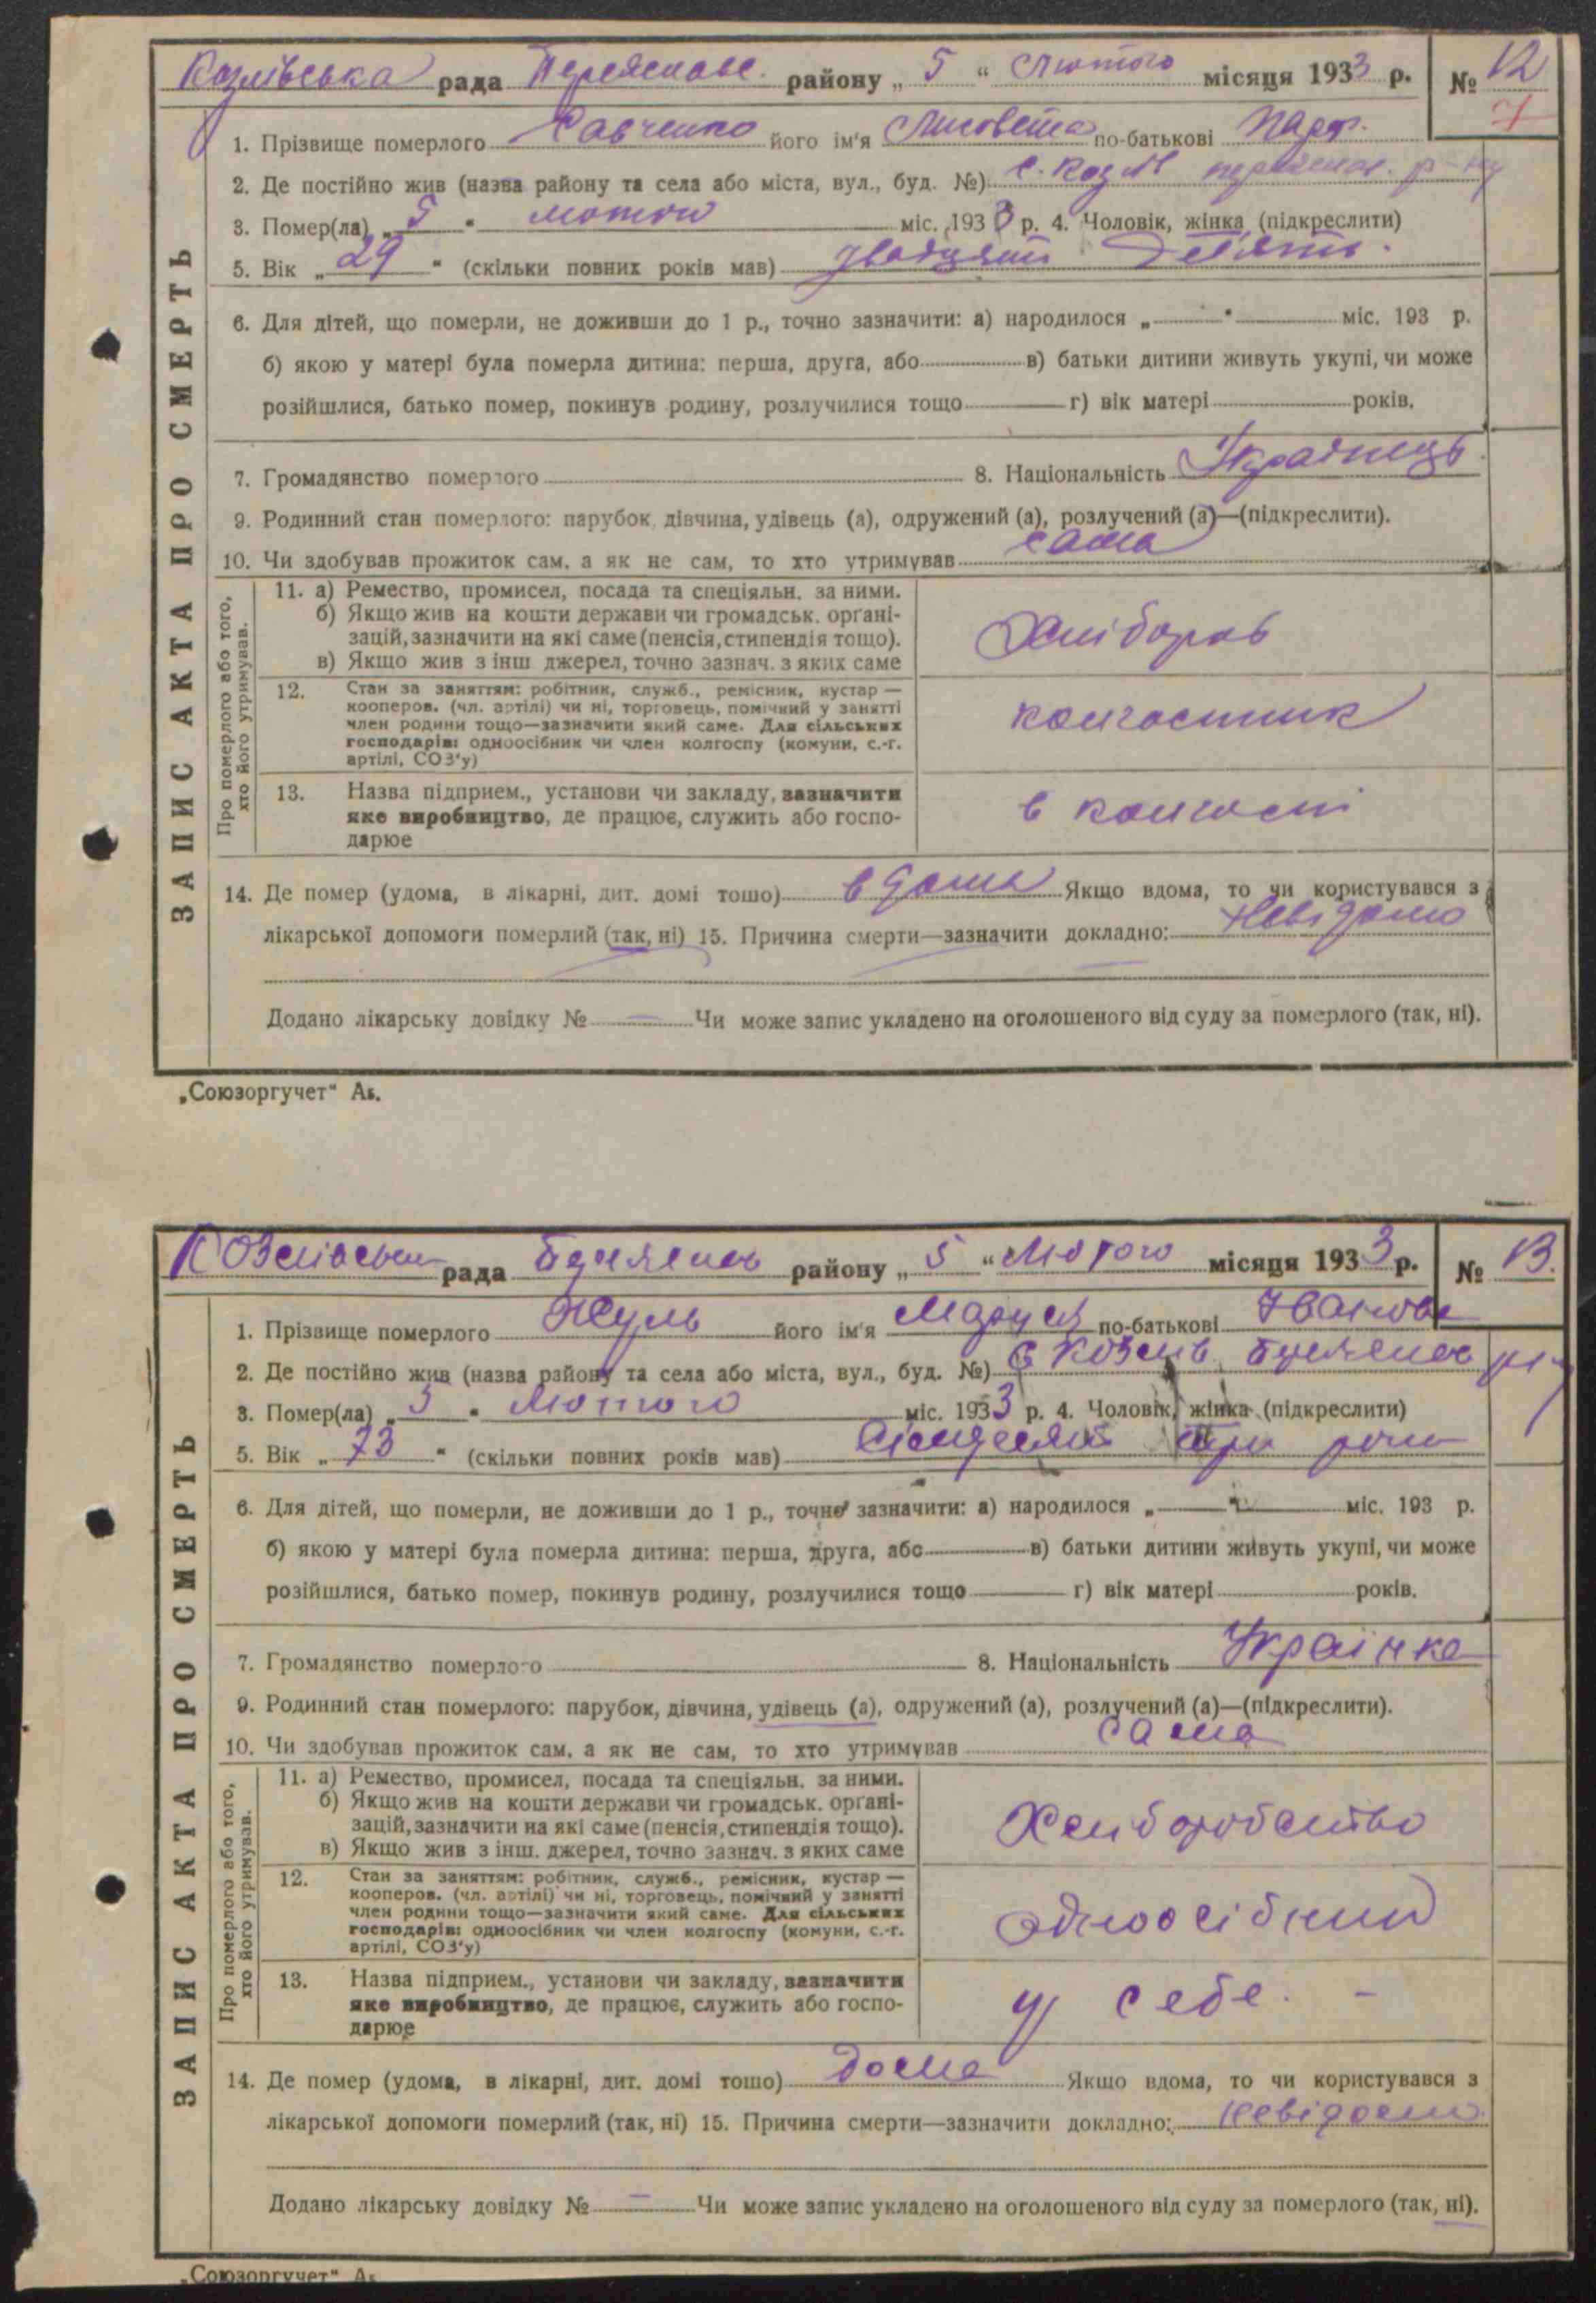 Козлівська рада Переяславс. району „ 5 “ Лютого місяця 1933 р. № 12
7
1. Прізвище померлого Савченко його ім'я Лисовета по-батькові Парф.
2. Де постійно жив (назва району та села або міста, вул., буд. №) с. Козлів переяслав. р-ну
3. Помер(ла) „ 5 “ лютого міс. 1933 р. 4. Чоловік, жінка (підкреслити)
5. Вік „ 29 “ (скільки повних років мав) двадцять девять.
6. Для дітей, що померли, не доживши до 1 р., точно зазначити: а) народилося „ “ міс. 193 р.
б) якою у матері була померла дитина: перша, друга, або в) батьки дитини живуть укупі, чи може
розійшлися, батько помер, покинув родину, розлучилися тощо г) вік матері років.
7. Громадянство померлого 8. Національність Українець
9. Родинний стан померлого: парубок, дівчина, удівець (а), одружений (а), розлучений (а)—(підкреслити).
10. Чи здобував прожиток сам, а як не сам, то хто утримував сама
Про померлого або того,
хто його утримував.
11. а) Ремество, промисел, посада та спеціяльн. за ними.
б) Якщо жив на кошти держави чи громадськ. орґані-
зацій, зазначити на які саме (пенсія, стипендія тощо).
в) Якщо жив з інш джерел, точно зазнач. з яких саме
Хлібороб
12. Стан за заняттям: робітник, служб., ремісник, кустар —
кооперов. (чл. артілі) чи ні, торговець, помічний у занятті
член родини тощо—зазначити який саме. Для сільських
господарів: одноосібник чи член колгоспу (комуни, с.-г.
артілі, СОЗ'у)
колгостник
13. Назва підприєм., установи чи закладу, зазначити
яке виробництво, де працює, служить або госпо-
дарює
в колгоспі
14. Де помер (удома, в лікарні, дит. домі тошо) в дома Якщо вдома, то чи користувався з
лікарської допомоги померлий (так, ні) 15. Причина смерти—зазначити докладно: Невідомо
Додано лікарську довідку № — Чи може запис укладено на оголошеного від суду за померлого (так, ні).
ЗАПИС АКТА ПРО СМЕРТЬ
„Союзоргучет“ Аб.
Козлівська рада району „ 5 “ Лютого місяця 1933 р. № 13.
1. Прізвище померлого Жуль його ім'я Маруся по-батькові Іванова
2. Де постійно жив (назва району та села або міста, вул., буд. №) С Козлів
3. Помер(ла) „ 5 “ Лютого міс. 1933 р. 4. Чоловік, жінка (підкреслити)
5. Вік „ 73 “ (скільки повних років мав) Сімдесят три роки
6. Для дітей, що померли, не доживши до 1 р., точно зазначити: а) народилося „ “ міс. 193 р.
б) якою у матері була померла дитина: перша, друга, або в) батьки дитини живуть укупі, чи може
розійшлися, батько помер, покинув родину, розлучилися тощо г) вік матері років.
7. Громадянство померлого 8. Національність Українка
9. Родинний стан померлого: парубок, дівчина, удівець (а), одружений (а), розлучений (а)—(підкреслити).
10. Чи здобував прожиток сам, а як не сам, то хто утримував сама
Про померлого або того,
хто його утримував.
11. а) Ремество, промисел, посада та спеціяльн. за ними.
б) Якщо жив на кошти держави чи громадськ. орґані-
зацій, зазначити на які саме (пенсія, стипендія тощо).
в) Якщо жив з інш. джерел, точно зазнач. з яких саме
Хліборобство
12. Стан за заняттям: робітник, служб., ремісник, кустар —
кооперов. (чл. артілі) чи ні, торговець, помічний у занятті
член родини тощо—зазначити який саме. Для сільських
господарів: одноосібник чи член колгоспу (комуни, с.-г.
артілі, СОЗ'у)
одноосібник
13. Назва підприєм., установи чи закладу, зазначити
яке виробництво, де працює, служить або госпо-
дарює
у себе. -
14. Де помер (удома, в лікарні, дит. домі тошо) дома Якщо вдома, то чи користувався з
лікарської допомоги померлий (так, ні) 15. Причина смерти—зазначити докладно: невідомо
Додано лікарську довідку № — Чи може запис укладено на оголошеного від суду за померлого (так, ні).
ЗАПИС АКТА ПРО СМЕРТЬ
„Союзоргучет“ Аб